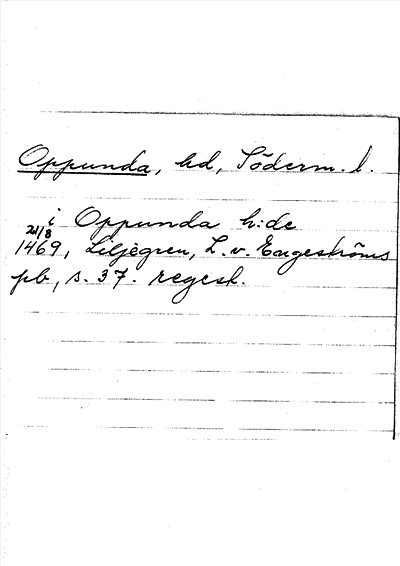 Oppunda, hd, Söderm. l.
i Oppunda h:de
21/8
1469, Liljegren, L. v. Engeströms
pb, s. 37. regest.